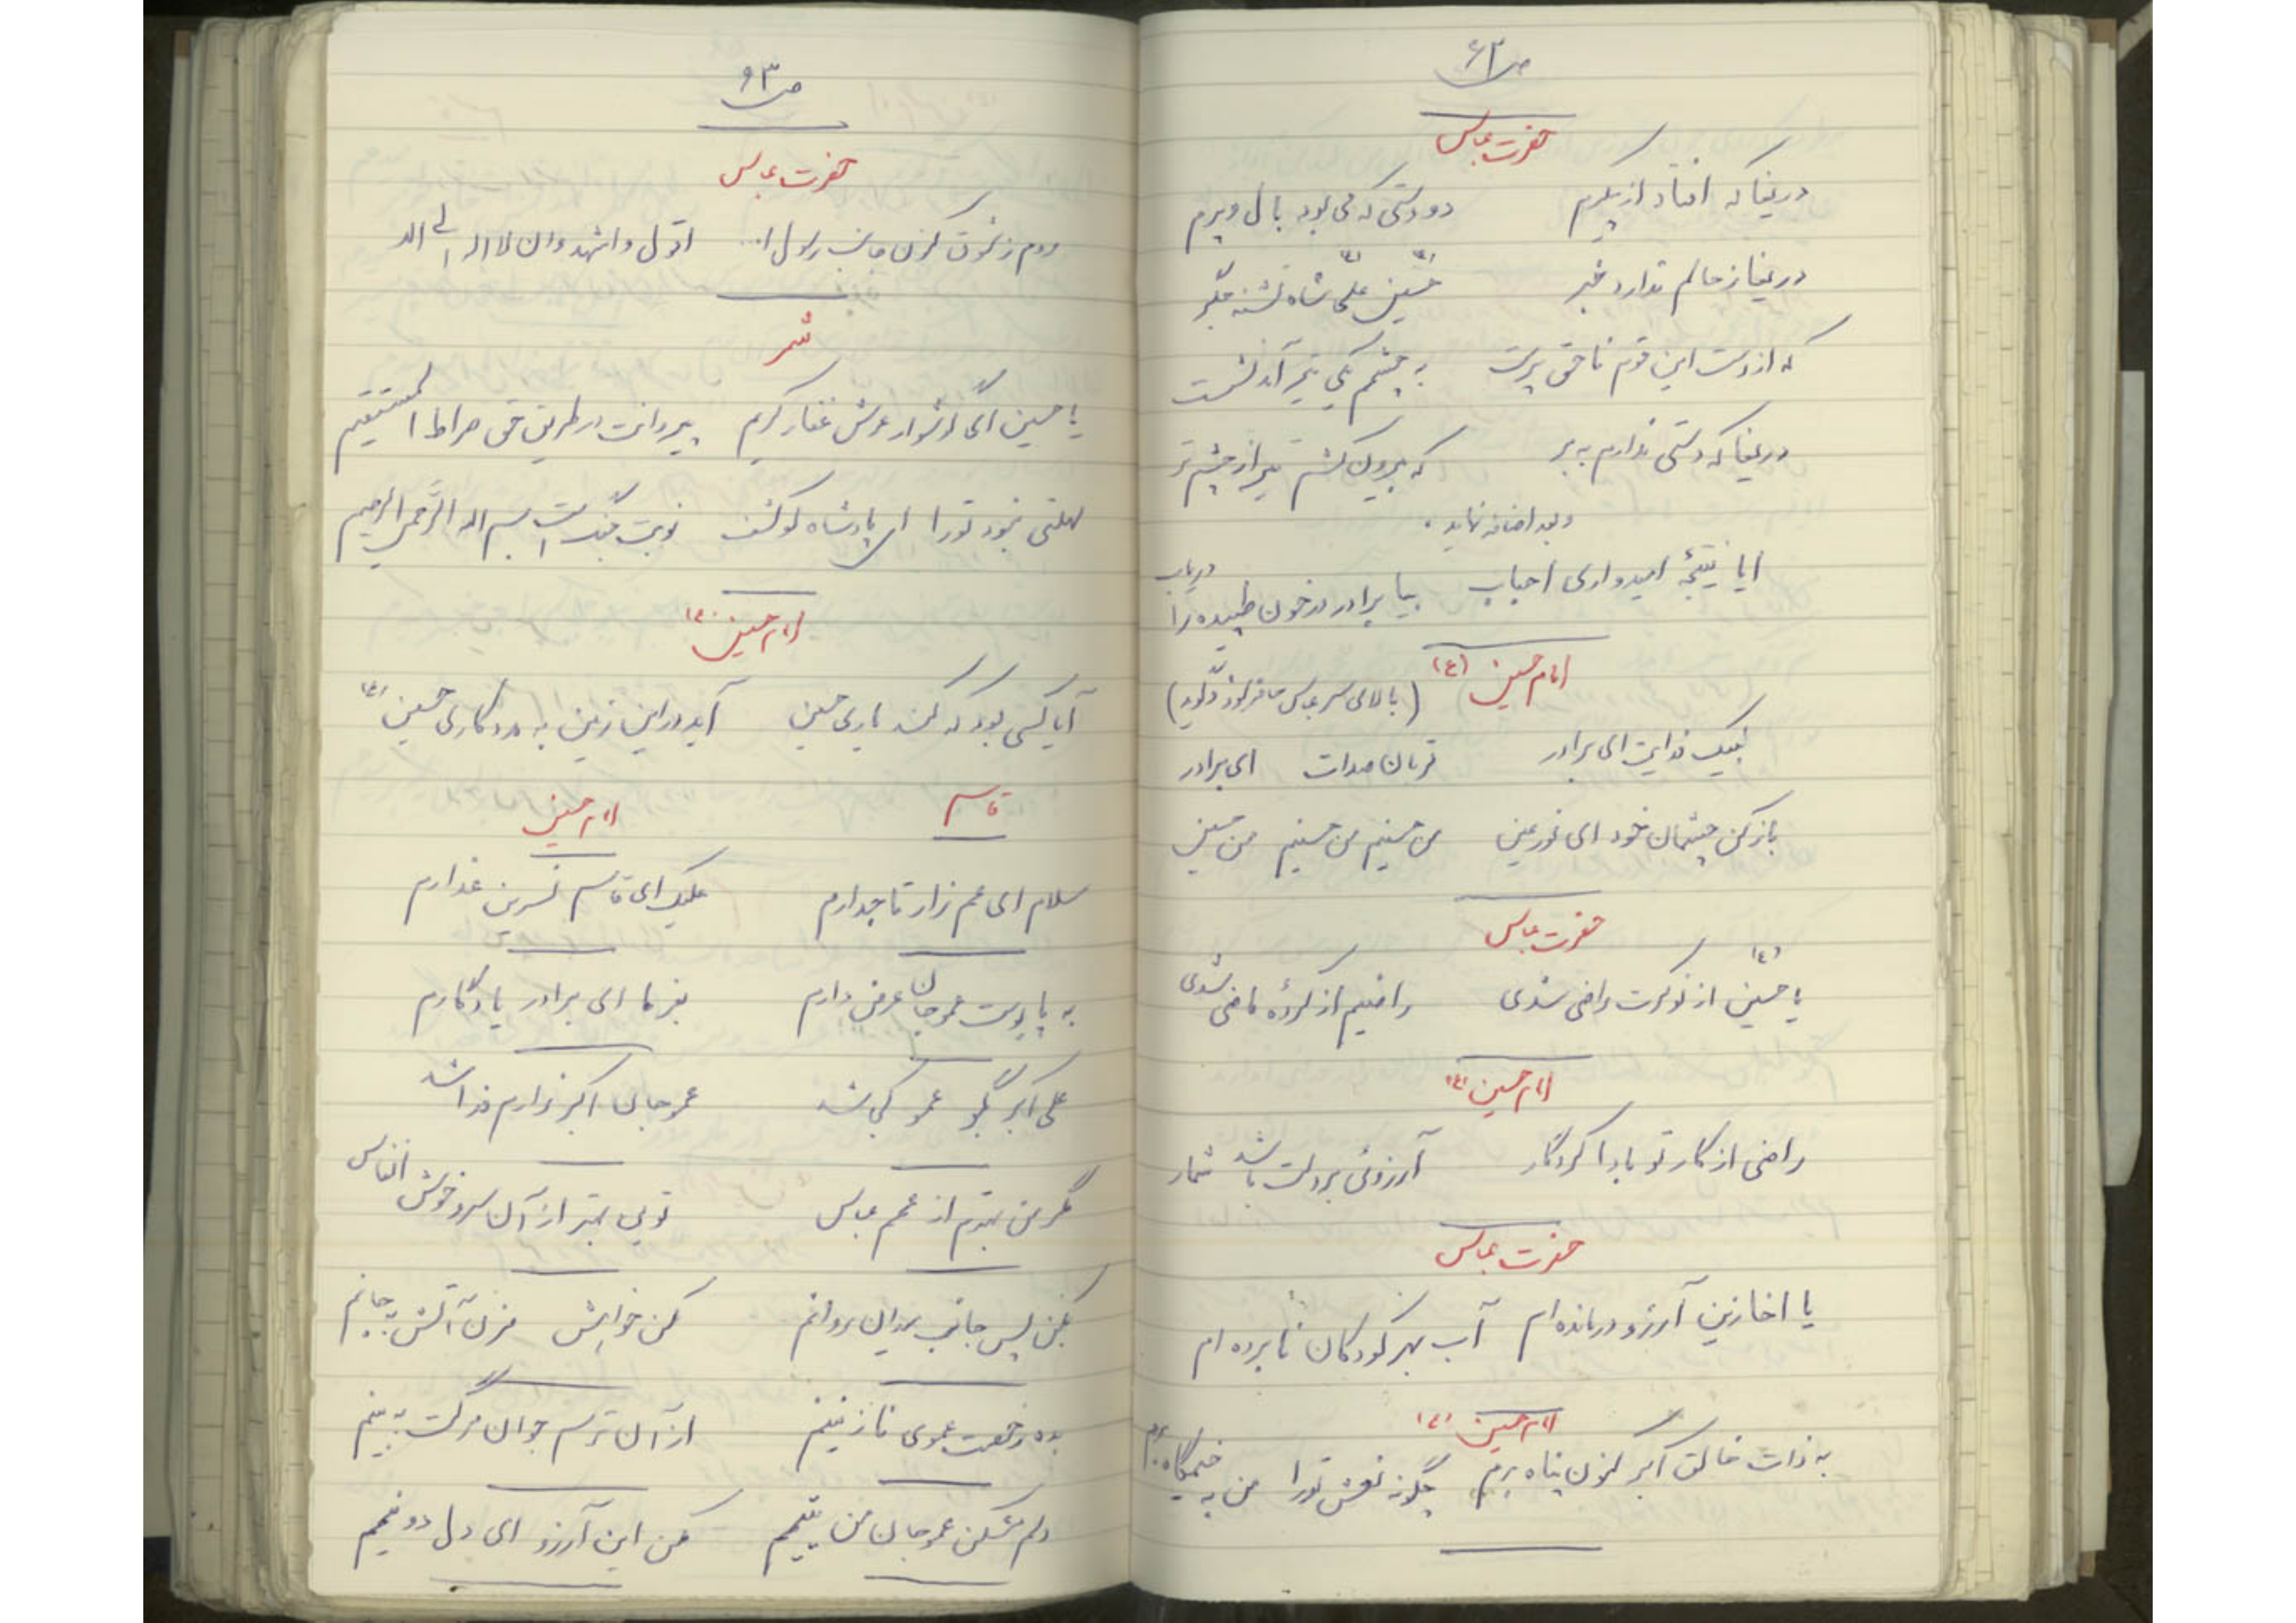 ص ۶۲
حضرت عباس
دریغا که افتاد از پیکرم دو دستی که می بود بال و پرم
دریغا ز حالم ندارد خبر حسین علی شاه تشنه جگر
که از دست این قوم ناحق پرست به چشمم یکی تیر آمد نشست
دریغا که دستی ندارم به بر که بیرون کشم تیر از چشم تر
و بعد اضافه نماید.
ایا نتیجهٔ امیدواری احباب بیا برادر در خون طپیده را دریاب
امام حسین (ع)
(بالای سر عباس حاضر شود و گوید)
لبیک فدایت ای برادر قربان صدات ای برادر
باز کن چشمان خود ای نور عین من حسینم من حسینم من حسین
حضرت عباس
یا حسین (ع) از نوکرت راضی شدی راضیم از کردهٔ ماضی شدی
امام حسین (ع)
راضی از کار تو بادا کردگار آرزوئی بر دلت باشد شمار
حضرت عباس
یا اخا زین آرزو درمانده ام آب بهر کودکان نابرده ام
امام حسین (ع)
به ذات خالق اکبر کنون پناه برم چگونه نعش تو را من به خیمگاه برم
ص ۶۳
حضرت عباس
روم ز کنون جانب رسول ا... اقول و اشهد و ان لا اله الی الله
شمر
یا حسین ای گوشوار عرش غفار کریم پیروانت در طریق حق صراط المستقیم
مهلتی نبود تو را ای پادشاه نوبت جنگ است بسم الله الرحمن الرحیم
امام حسین (ع)
آیا کسی بود که کند یاری حسین آید در این زمین به مددکاری حسین (ع)
قاسم امام حسین
سلام ای عم زار تاجدارم علیک ای قاسم نسرین عذارم
به پابوست عمو جان عرض دارم بفرما ای برادر یادگارم
علی اکبر بگو عمو کی شد عمو جان اکبر زارم فدا شد
مگر من بهترم از عمم عباس تویی بهتر از آن سرو خوش انفاس
بکن پس جانب میدان روانم مکن خواهش مزن آتش به جانم
بده رخصت عموی نازنینم از آن ترسم جوان مرگت به بینم
دلم مشکن عمو جان من یتیمم مکن این آرزو ای دل دو نیمم